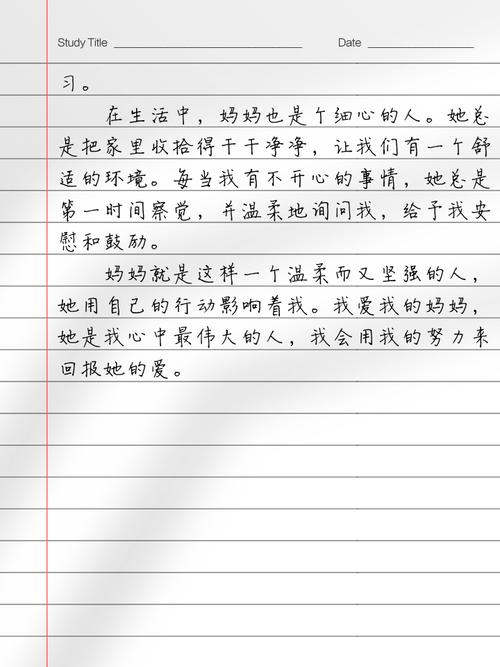 Study Title Date
习。
在生活中，妈妈也是个细心的人。她总
是把家里收拾得干干净净，让我们有一个舒
适的环境。每当我有不开心的事情，她总是
第一时间察觉，并温柔地询问我，给予我安
慰和鼓励。
妈妈就是这样一个温柔而又坚强的人，
她用自己的行动影响着我。我爱我的妈妈，
她是我心中最伟大的人，我会用我的努力来
回报她的爱。